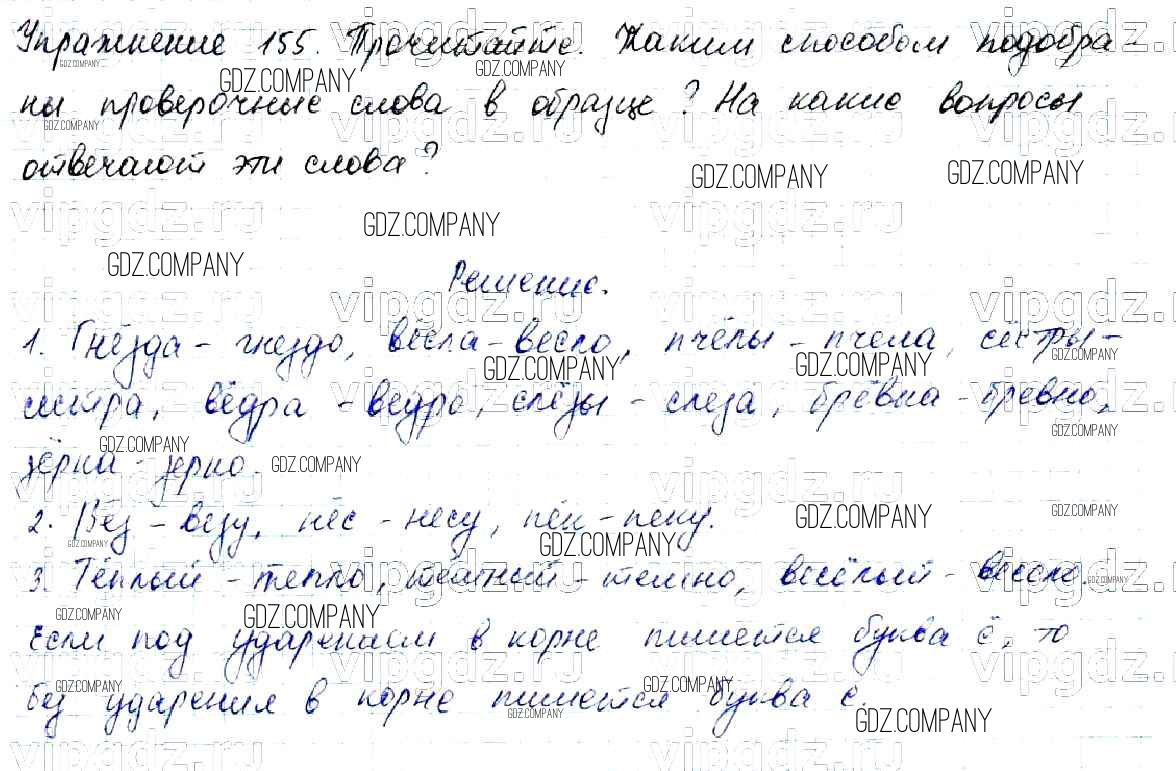 Упражнение 155. Прочитайте. Каким способом подобра-
ны проверочные слова в образце? На какие вопросы
отвечают эти слова?
Решение.
1. Гнёзда - гнездо, вёсла - весло, пчёлы - пчела, сёстры -
сестра, вёдра - ведро, слёзы - слеза, брёвна - бревно,
зёрна - зерно.
2. Вёз - везу, нёс - несу, пёк - пеку.
3. Тёплый - тепло, тёмный - темно, весёлый - весело.
Если под ударением в корне пишется буква ё, то
без ударения в корне пишется буква е.
GDZ.COMPANY
vipgdz.ru